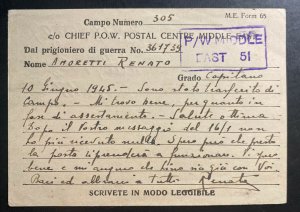 Campo Numero 305
M.E. Form 65
c/o CHIEF P.O.W. POSTAL CENTRE MIDDLE EAST
P/W MIDDLE
EAST 51
Dal prigioniero di guerra No. 361759
Nome AMORETTI RENATO
Grado Capitano
10 Giugno 1945 - Sono stato trasferito di
campo - Mi trovo bene, per quanto in
fase di assestamento - Salute ottima
Dopo il Vostro messaggio del 16/1 non
ho più ricevuto nulla. Spero però che presto
la posta riprenderà a funzionare. Vi penso
bene e mi auguro che sia con Voi
Baci ed abbracci a Tutti Renato
SCRIVETE IN MODO LEGGIBILE